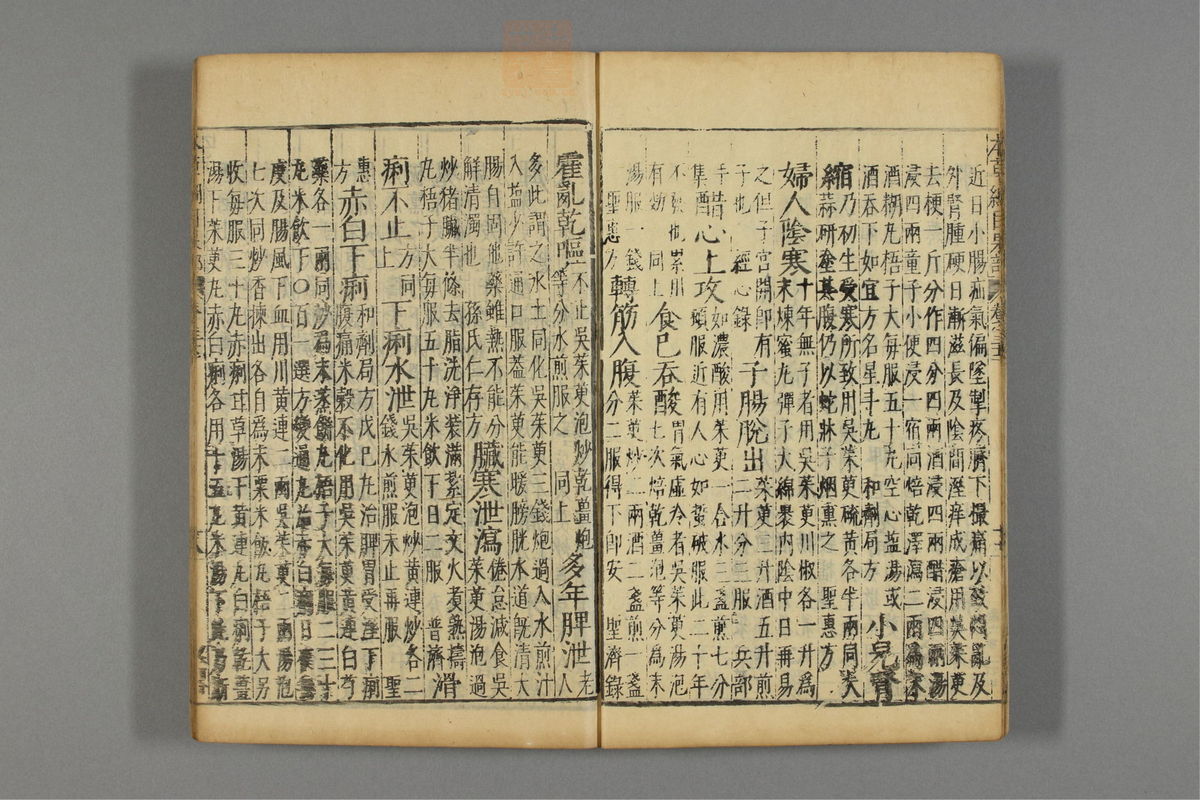 近日小腸疝氣偏墜掣疼臍下撮痛以致悶亂及
外腎腫硬日漸滋長及陰間濕痒成瘡用吳茱萸
去梗一斤分作四分四兩酒浸四兩醋浸四兩湯
浸四兩童子小便浸一宿同焙乾澤瀉二兩爲末
酒糊丸梧子大每服五十丸空心鹽湯或
酒吞下如宜方名星斗丸 和劑局方 小兒腎
縮乃初生受寒所致用吳茱萸硫黃各半兩同大
蒜研塗其腹仍以蛇牀子烟熏之 聖惠方
婦人陰寒十年無子者用吳茱萸川椒各一升爲
末煉蜜丸彈子大綿裹內陰中日再易
之但子宮開即有子也 經心錄 子腸脫出茱萸三升酒五升煎二升分三服 兵部
手集 醋心上攻如濃酸用茱萸一合水三盞煎七分頓服近有人心如蜇破服此二十年
不發也累用有効 同上 食已吞酸胃氣虛冷者吳茱萸湯泡七次焙乾薑炮等分爲末
湯服一錢 聖惠方 轉筋入腹茱萸炒二兩酒二盞煎一盞分二服得下即安 聖濟錄
霍亂乾嘔不止吳茱萸泡炒乾薑炮等分水煎服之 同上 多年脾泄老人
多此謂之水土同化吳茱萸三錢炮過入水煎汁
入鹽少許通口服蓋茱萸能暖膀胱水道既清大
腸自固他藥雖熱不能分解清濁也 孫氏仁存方 臟寒泄瀉倦怠減食吳茱萸湯泡過
炒猪臟半條去脂洗淨裝滿紥定文火煮熟擣
丸梧子大每服五十丸米飲下日二服 普濟 滑
痢不止方同上 下痢水泄吳茱萸泡炒黃連炒各二錢水煎服未止再服 聖
惠方 赤白下痢和劑局方戊己丸治脾胃受濕下痢腹痛米穀不化用吳茱萸黃連白芍
藥各一兩同炒爲末蒸餅丸梧子大每服二三十
丸米飲下○百一選方變通丸治赤白痢日夜無
度及腸風下血用川黃連二兩吳茱萸二兩湯泡
七次同炒香揀出各自爲末粟米飯丸梧子大另
收每服三十丸赤痢甘草湯下黃連丸白痢乾薑
湯下茱萸丸赤白痢各用十五丸米湯下